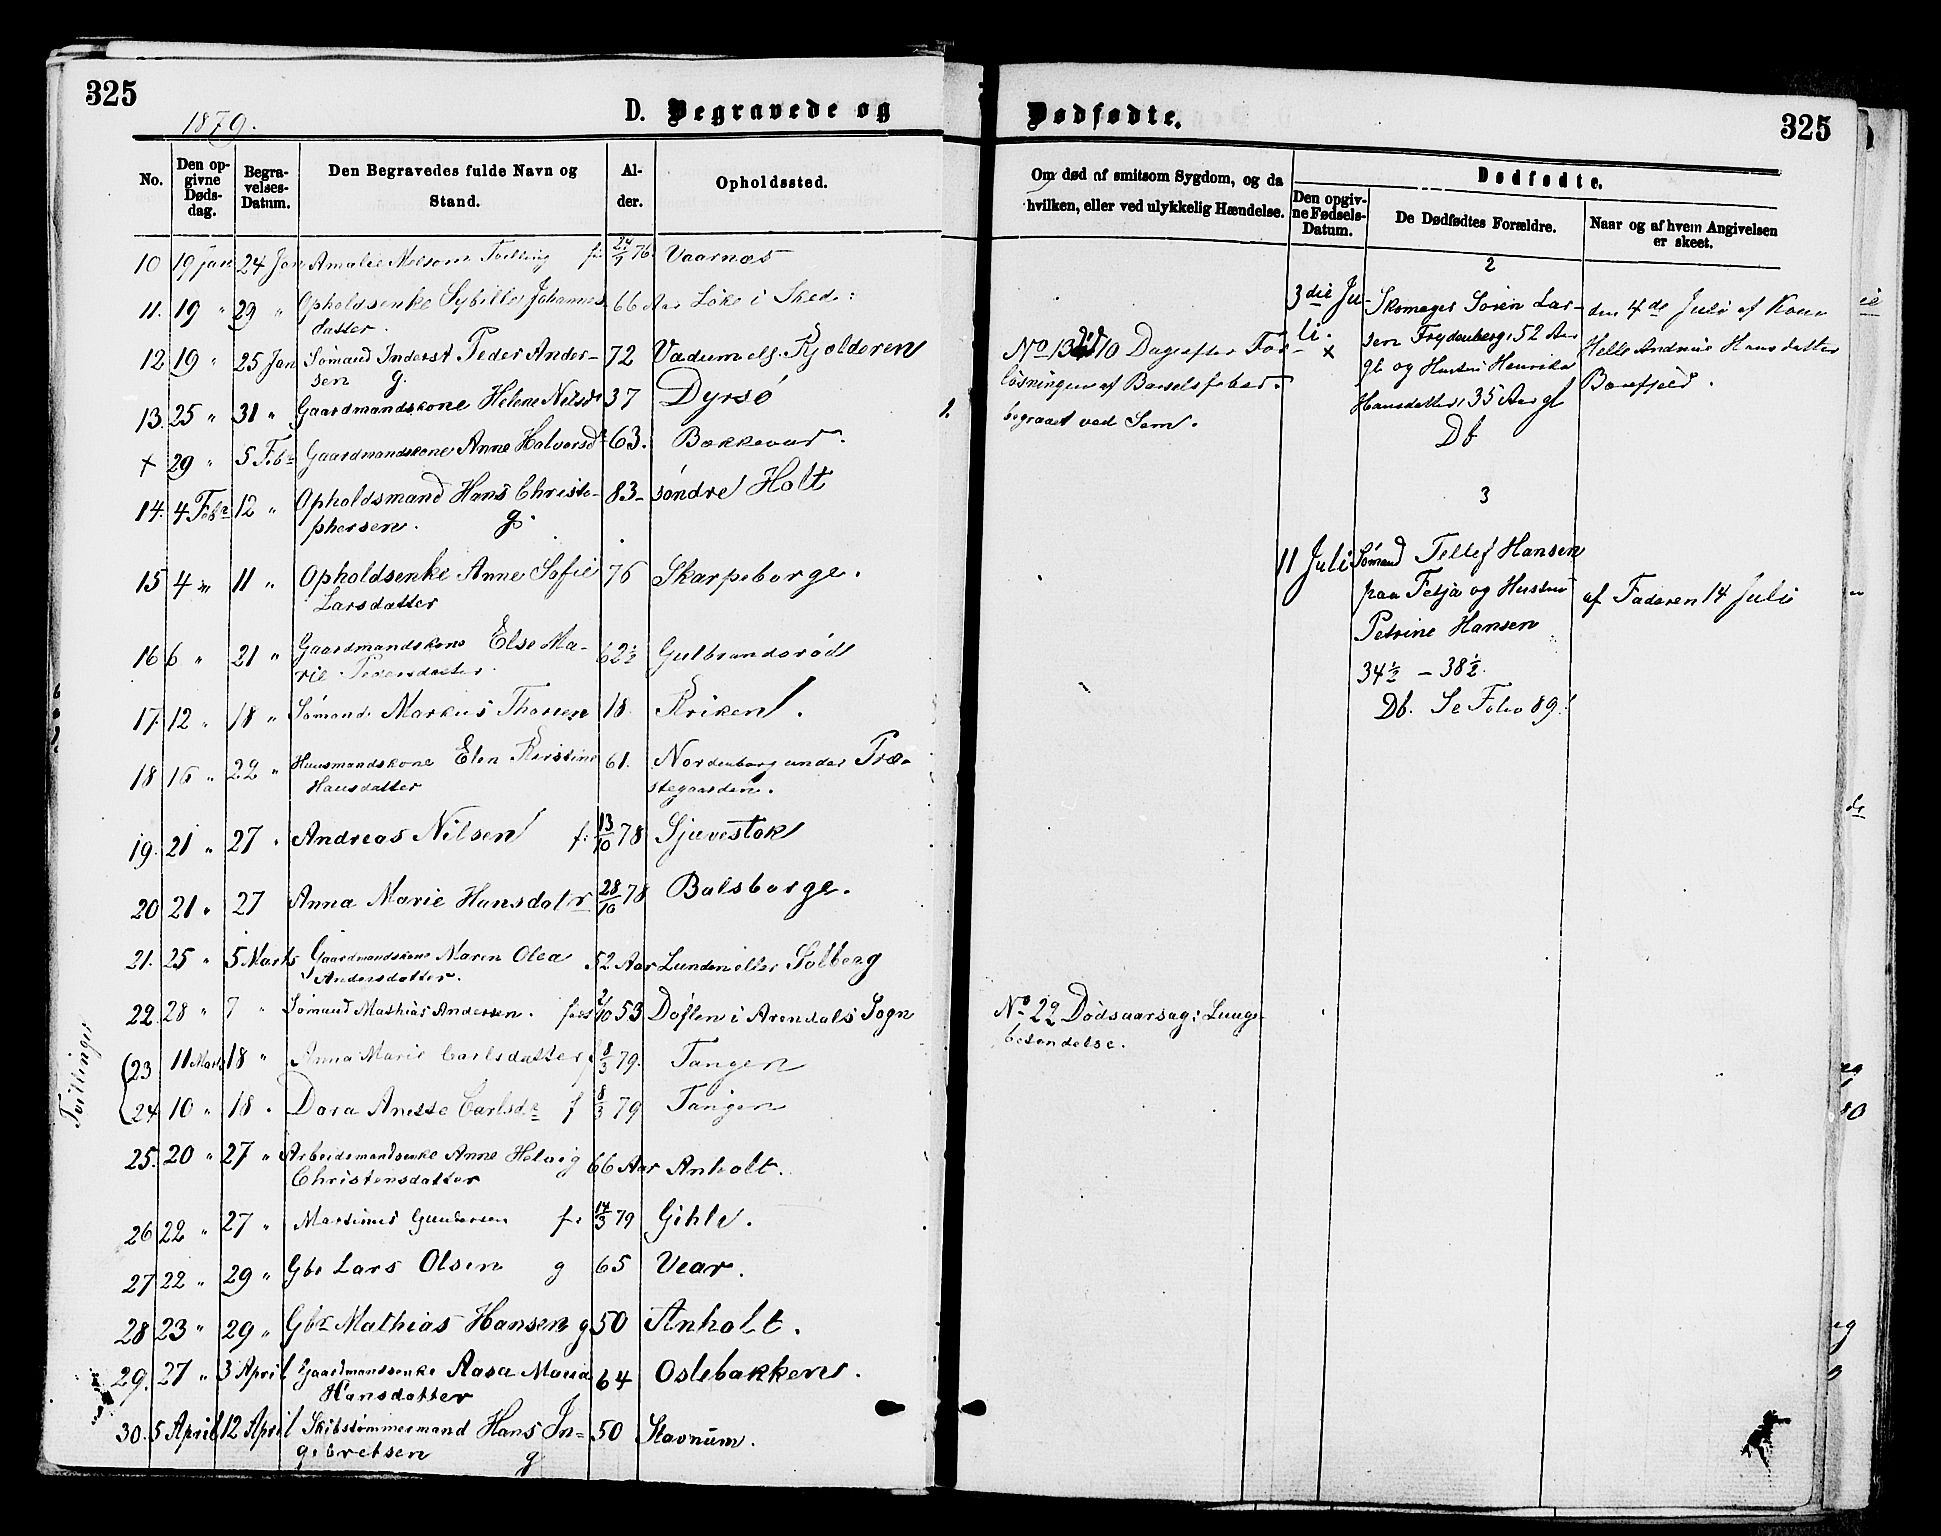 325
1879.
D. Begravede og
No.
Den op-
givne
Døds-
dag.
Begra-
velses-
Datum.
Den Begravedes fulde Navn og
Stand.
Al-
der.
Opholdssted.
10 19 Jan 24 Jan Amalie Nelsom Tvilling f: 24/1 76. Vaarnæs
11. 19 " 29 " Opholdsenke Sybille Johannes 66 Aar Løke i Skede:
datter.
12 19 " 25 Jan Sømand Inderst Peder Ander- 72 Vadum els. Kjolderen
sen g.
13. 25 " 31 " Gaardmandskone Helene Nilsdr 37 Dyrsø
+ 29 " 5 Febr Gaardmandskone Anne Halvorsdr 63. Bækkevar.
14. 4 Febr 12 " Opholdsmand Hans Christo- 83- søndre Holt
phersen. g.
15 4 " 11 " Opholdsenke Anne Sofie 76 Skarpeborge.
Larsdatter
16 6 " 21 " Gaardmandskone Else Ma- 62½ Gulbrandsrød
rie Pedersdatter.
17. 12 " 18 " Sømand Markus Thorsen 18. Kriken.
18 16 " 22 " Huusmandskone Elen Kirstine 61. Nordenborg under Præ-
Hansdatter stegaarden.
19. 21 " 27 " Andreas Nilsen f: 13/10 78 Sjuestok
20 21 " 27 Anna Marie Hansdatr 28/10 78 Bolsborge.
21. 25 " 5 Marts Gaardmandskone Maren Olea 52 Aar Lunden eller Solberg
Andersdatter.
22. 28 " 7 " Sømand Mathias Andersen. fød 2/10 53 Døften i Arendals Sogn
Tvillinger
23 11 Marts 18 " Anna Marie Carlsdatter f 8/3 79. Tangen
24 10 " 18. Dora Anette Carlsdr f 8/3 79 Tangen
25. 20 " 27 " Arbeidsmandsenke Anne Helvig 66 Aar Anholt.
Christensdatter
26 22 " 27 " Martinus Gundersen f: 14/3 79 Gihle.
27 22 " 29 " Gbr Lars Olsen g 65 Vear.
28 23 " 29 " Gbr Mathias Hansen g 50 Anholt.
29. 27 " 3 April Gaardmandsenke Aasa Maria 64 Oslebakken.
Hansdatter
30. 5 April 12 April Skibstømmermand Hans In- 50 Stavnum.
gebretsen g
Dødfødte.
325
Om død af smitsom Sygdom, og da
hvilken, eller ved ulykkelig Hændelse.
Dødfødte.
Den opgiv-
ne Fødsels-
Datum.
De Dødfødtes Forældre.
Naar og af hvem Angivelsen
er skeet.
No 13 død 10 Dage efter For-
løsningen af Barselsfeber.
begravet ved Sem.
2
3die Ju-
li. +
Skomager Søren Lar-
sen Frydenberg, 52 Aar
gl og Hustru Henrikke
Hansdatter 35 Aar gl
Db
den 4de Juli af Kone
Helle Andrine Hansdatter
Borefjeld.
3
11 Juli Sømand Tellef Hansen
paa Fetja og Hustru
Petrine Hansen
34½ - 38½.
Db. Se Folio 89!
af Faderen 14 Juli
No 22 Dødsaarsag: Lunge-
betendelse.